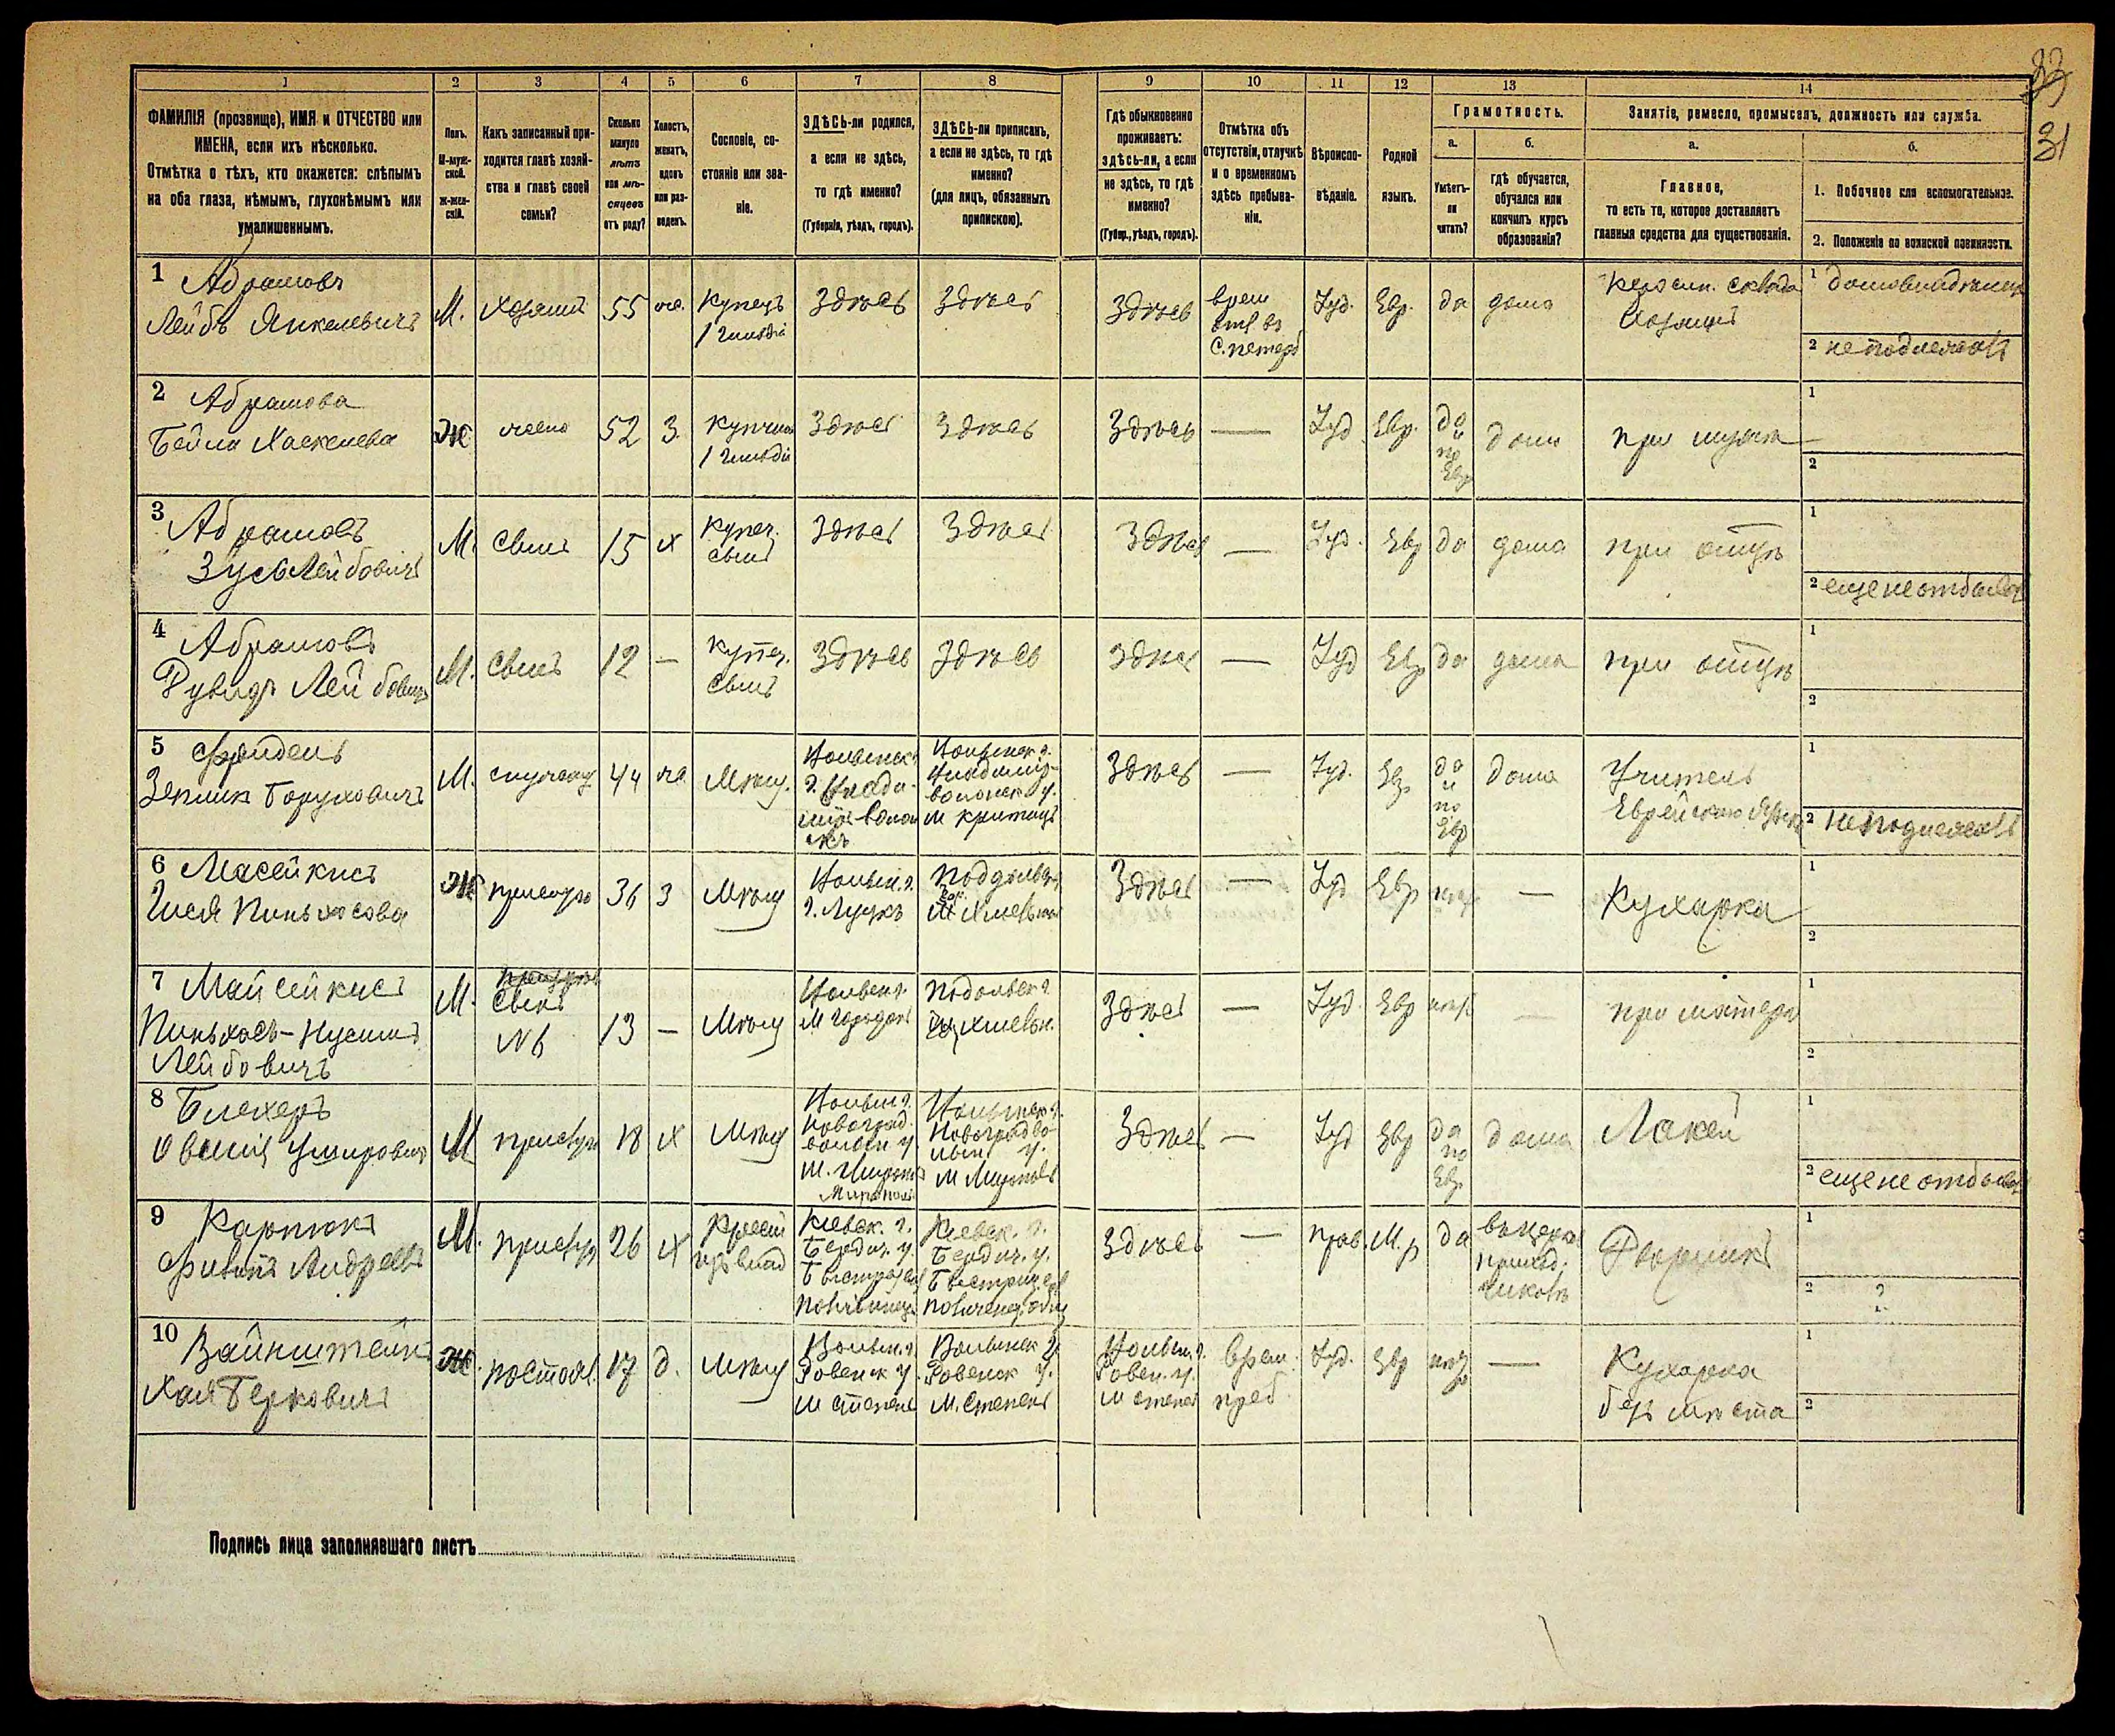 33
31
1 2 3 4 5 6 7 8 9 10 11 12 13 14
ФАМИЛІЯ (прозвище), ИМЯ и ОТЧЕСТВО или
ИМЕНА, если ихъ нѣсколько.
Отмѣтка о тѣхъ, кто окажется: слѣпымъ
на оба глаза, нѣмымъ, глухонѣмымъ или
умалишеннымъ.
Полъ.
М-муж-
ской.
Ж-жен-
скій.
Какъ записанный при-
ходится главѣ хозяй-
ства и главѣ своей
семьи?
Сколько
минуло
лѣтъ
или мѣ-
сяцевъ
отъ роду?
Холостъ,
женатъ,
вдовъ
или раз-
веденъ.
Сословіе, со-
стояніе или зва-
ніе.
ЗДѢСЬ-ли родился,
а если не здѣсь,
то гдѣ именно?
(Губернія, уѣздъ, городъ).
ЗДѢСЬ-ли приписанъ,
а если не здѣсь, то гдѣ
именно?
(для лицъ, обязанныхъ
припискою).
Гдѣ обыкновенно
проживаетъ:
здѣсь-ли, а если
не здѣсь, то гдѣ
именно?
(Губер., уѣздъ, городъ).
Отмѣтка объ
отсутствіи, отлучкѣ
и о временномъ
здѣсь пребыва-
ніи.
Вѣроиспо-
вѣданіе.
Родной
языкъ.
Грамотность.
а.
Умѣетъ-
ли
читать?
б.
гдѣ обучается,
обучался или
кончилъ курсъ
образованія?
Занятіе, ремесло, промыселъ, должность или служба.
а.
Главное,
то есть то, которое доставляетъ
главныя средства для существованія.
б.
1. Побочное или вспомогательное.
2. Положеніе по воинской повинности.
1 Абрамовъ
Лейбъ Янкелевичъ
М.
Хозяинъ
55
же.
Купецъ
1 гильдіи
Здѣсь
Здѣсь
Здѣсь
врем
отл въ
С. петерб
Іуд.
Евр.
да
дома
Керосин. склада
1 домовладѣлецъ
2 неподлежитъ
2 Абрамова
Бейла Хаскелева
Ж
жена
52
З.
Купчиха
1 гильдіи
Здѣсь
Здѣсь
Здѣсь
—
Іуд
Евр.
да
и
по
Евр
дома
при мужѣ
1
2
3 Абрамовъ
Зусь Лейбовичъ
М.
Сынъ
15
х
Купеч.
сынъ
Здѣсь
Здѣсь
Здѣсь
—
Іуд.
Евр
да
дома
при отцѣ
1
2 еще не отбывал
4 Абрамовъ
Рувидъ Лейбовичъ
М.
Сынъ
12
—
Купеч.
сынъ
Здѣсь
Здѣсь
Здѣсь
—
Іуд
Евр
да
дома
при отцѣ
1
2
5 Фридель
Зелик Боруховичъ
М.
44
же
Мѣщ.
Волынск. г.
Владимір-
волынск у.
Здѣсь
—
Іуд.
Евр
да
и
по
Евр
дома
Учитель
Еврейскаго языка
1
2 неподлежитъ
6 Масейкисъ
Гися Пиньхасова
Ж
прислуга
36
З
Мѣщ
Волын. г.
г. Луцкъ
Здѣсь
—
Іуд
Евр
—
Кухарка
1
2
7 Майсейкисъ
Пиньхасъ-Нусимъ
Лейбовичъ
М.
Сынъ
№6
13
—
Мѣщ
Волынск г.
Подольск г.
Здѣсь
—
Іуд.
Евр
—
при матери
1
2
8 Блехеръ
М
прислуг
18
х
Мѣщ
Волын г.
Новоград.
волын у.
Мирополь
Волынск г.
Новоградво-
лын. у.
Здѣсь
—
Іуд
Евр
да
по
Евр
дома
Лакей
1
2 еще не отбывал
9 Карпюкъ
Филипъ Андреевъ
М.
прислуг
26
х
Крест
Кіевск. г.
Бердич. у.
Кіевск. г.
Бердич. у.
Здѣсь
—
прав.
М. р
да
въ церк
приход.
Дворникъ
1
2 ?
10 Вайнштейн
Хая Берковичъ
Ж.
17
д.
Мѣщ
Волын. г.
Ровенск у.
М Степень
Волынск г.
Ровенск у.
М. Степень
Волын. г.
Ровен. у.
М Степень
врем.
преб
Іуд.
Евр
—
Кухарка
безъ мѣста
1
2
Подпись лица заполнявшаго листъ